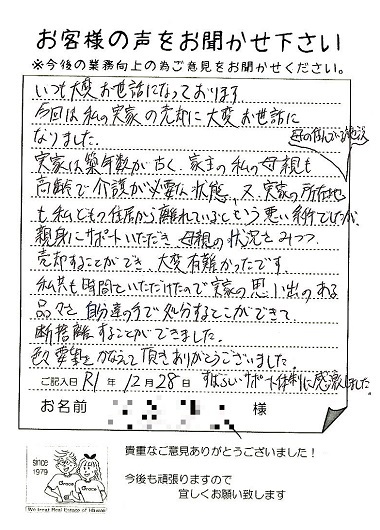 お客様の声をお聞かせ下さい
※今後の業務向上の為ご意見をお聞かせください。
いつも大変お世話になっております
今回は私の実家の売却に大変お世話に
なりました。
実家は築年数が古く、家主の私の母親も
高齢で介護が必要な状態、又実家の所在地
も私どもの住居から離れているという悪い条件でしたが、
親身にサポートいただき母親の状況をみつつ
売却することができ、大変有難かったです
私共も時間をいただけたので実家の思い出のある
品々を自分達の手で処分することができて
断捨離することができました。
要望をかなえて頂きありがとうございました
ご記入日 R1 年 12 月 28 日 すばらしいサポート体制に感激しました。
お名前 様
貴重なご意見ありがとうございました！
今後も頑張りますので
宜しくお願い致します
since
1979
Grace
Grace
We treat Real Estate of